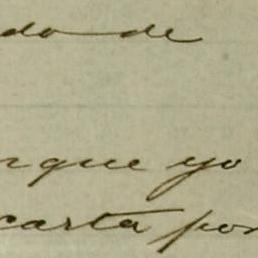 do de
rque yo
carta por